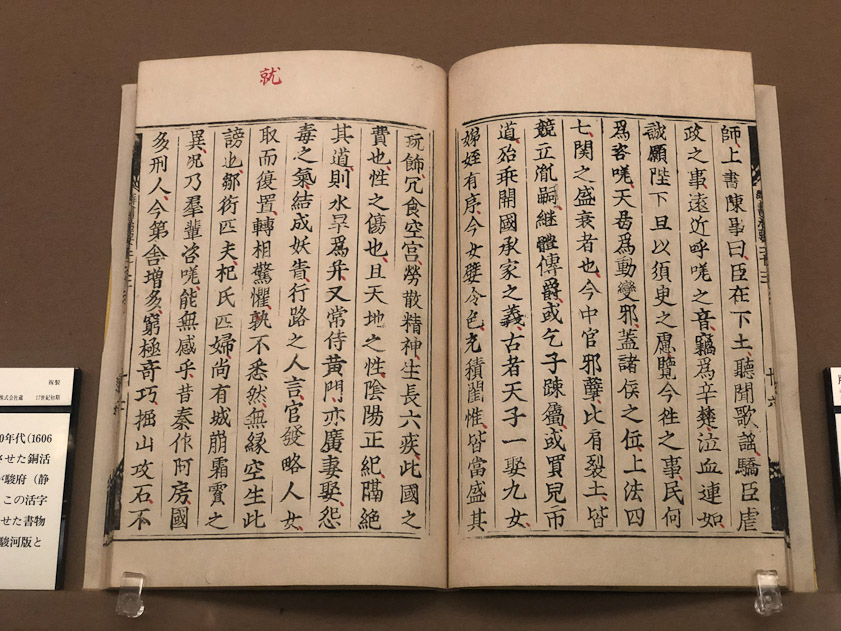 師上書陳事曰臣在下土聽聞歌謠驕臣虐
政之事遠近呼嗟之音竊爲辛楚泣血連如
誠願陛下且以須臾之慮覽今往之事民何
爲咨嗟天曷爲動變邪蓋諸侯之位上法四
七關之盛衰者也今中官邪孽比肩裂土皆
競立胤嗣繼體傳爵或乞子疎屬或買兒市
道殆乖開國承家之義古者天子一娶九女
娣姪有序今女嬖令色充積閨帷皆當盛其
就
玩飾冗食空宮勞散精神生長六疾此國之
費也性之傷也且天地之性陰陽正紀隔絶
其道則水旱爲并又常侍黄門亦廣妻娶怨
毒之氣結成妖眚行路之人言官發略人女
取而復置轉相驚懼孰不悉然無緣空生此
謗也鄒衍匹夫杞氏匹婦尚有城崩霜霣之
異況乃羣輩咨嗟能無感乎昔秦作阿房國
多刑人今第舍增多窮極奇巧掘山攻石不
複製
株式会社蔵 17世紀初期
0年代(1606
させた銅活
駿府(静
この活字
せた書物
駿河版と